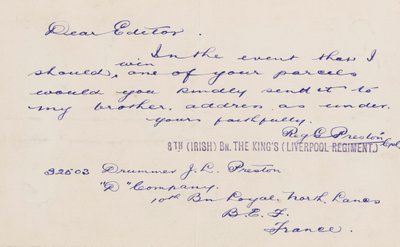 Dear Editor.
In the event that I
should win one of your parcels
would you kindly send it to
my brother. address as under.
yours faithfully.
Reg C Preston Cpl
8TH (IRISH) BN. THE KING'S (LIVERPOOL REGIMENT.)
32503 Drummer J. L. Preston
"D" Company.
10th Bn Loyal. North Lancs
B.E.F.
France.